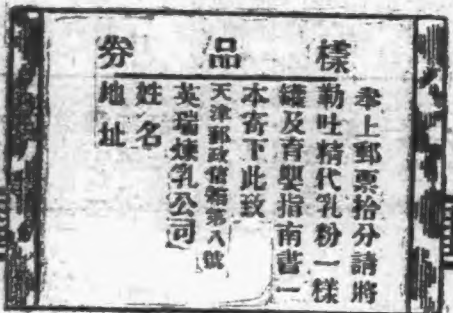 樣品券
奉上郵票拾分請將
勒吐精代乳粉一樣
罐及育嬰指南書一
本寄下此致
天津郵政信箱第八號
英瑞煉乳公司
姓名
地址